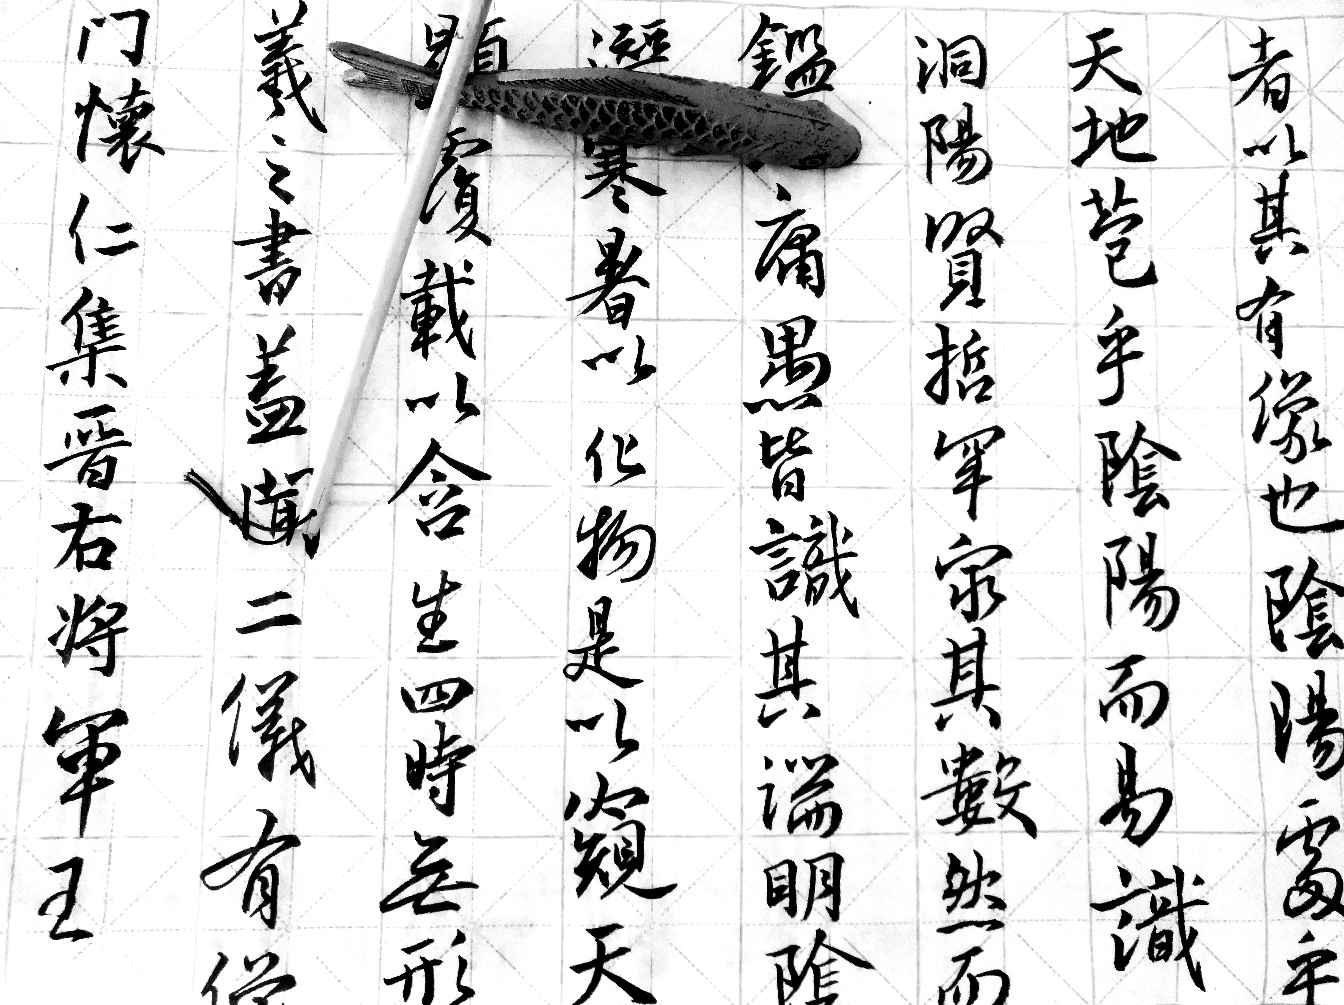 门懷仁集晋右将軍王
羲之書盖聞二儀有像
顯覆載以含生四時無形
潛寒暑以化物是以窺天
鑑庸愚皆識其端明陰
洞陽賢哲罕窮其數然而
天地苞乎陰陽而易識
者以其有像也陰陽處乎